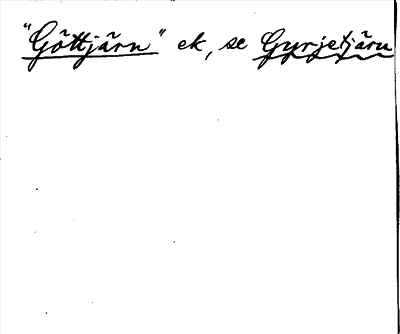 "Göttjärn" ek, se Gyrjetjärn